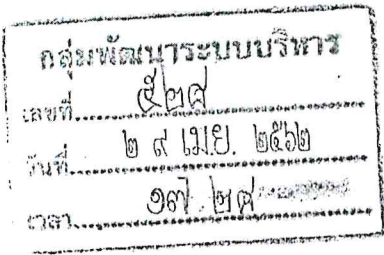 กลุ่มพัฒนาระบบบริหาร
เลขที่ ๕๒๘
วันที่ ๒ ๙ เม.ย. ๒๕๖๒
เวลา ๑๗ ๒๙